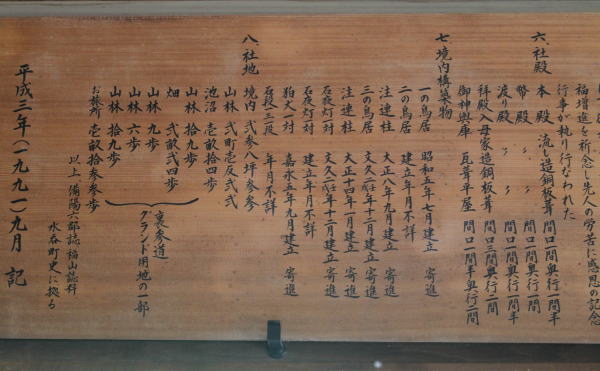 福増進を祈念し先人の労苦に感恩の記念
行事が執り行なわれた
六、社殿
本殿 流れ造銅板葺 間口一間奥行一間半
幣殿 〃 〃 間口一間奥行一間
渡り殿 〃 〃 間口一間奥行一間半
拝殿入母家造銅板葺 間口三間奥行二間
御神輿庫 瓦葺平屋 間口一間半奥行二間
七、境内構築物
一の鳥居 昭和五年七月建立 寄進
二の鳥居 建立年月不詳
注連柱 大正九年九月建立 寄進
三の鳥居 文久 十二月建立 寄進
注連柱 大正十四年一月建立 寄進
石夜灯一対 文久 十一月建立 寄進
石夜灯一対 建立年月不詳
狛犬一対 嘉永五年九月建立 寄進
石段三段 年月不詳
八、社地
境内 弐参八坪参参
山林 弐町壱反弐弐
池沼 壱畝拾四歩
山林 拾九歩
畑 弐畝弐四歩
山林 九歩
山林 六歩
山林 拾九歩
お旅所 壱畝拾参参歩
裏参道
グランド用地の一部
以上、備陽六郡誌 福山志料
水呑町史に拠る
平成三年(一九九一)九月 記